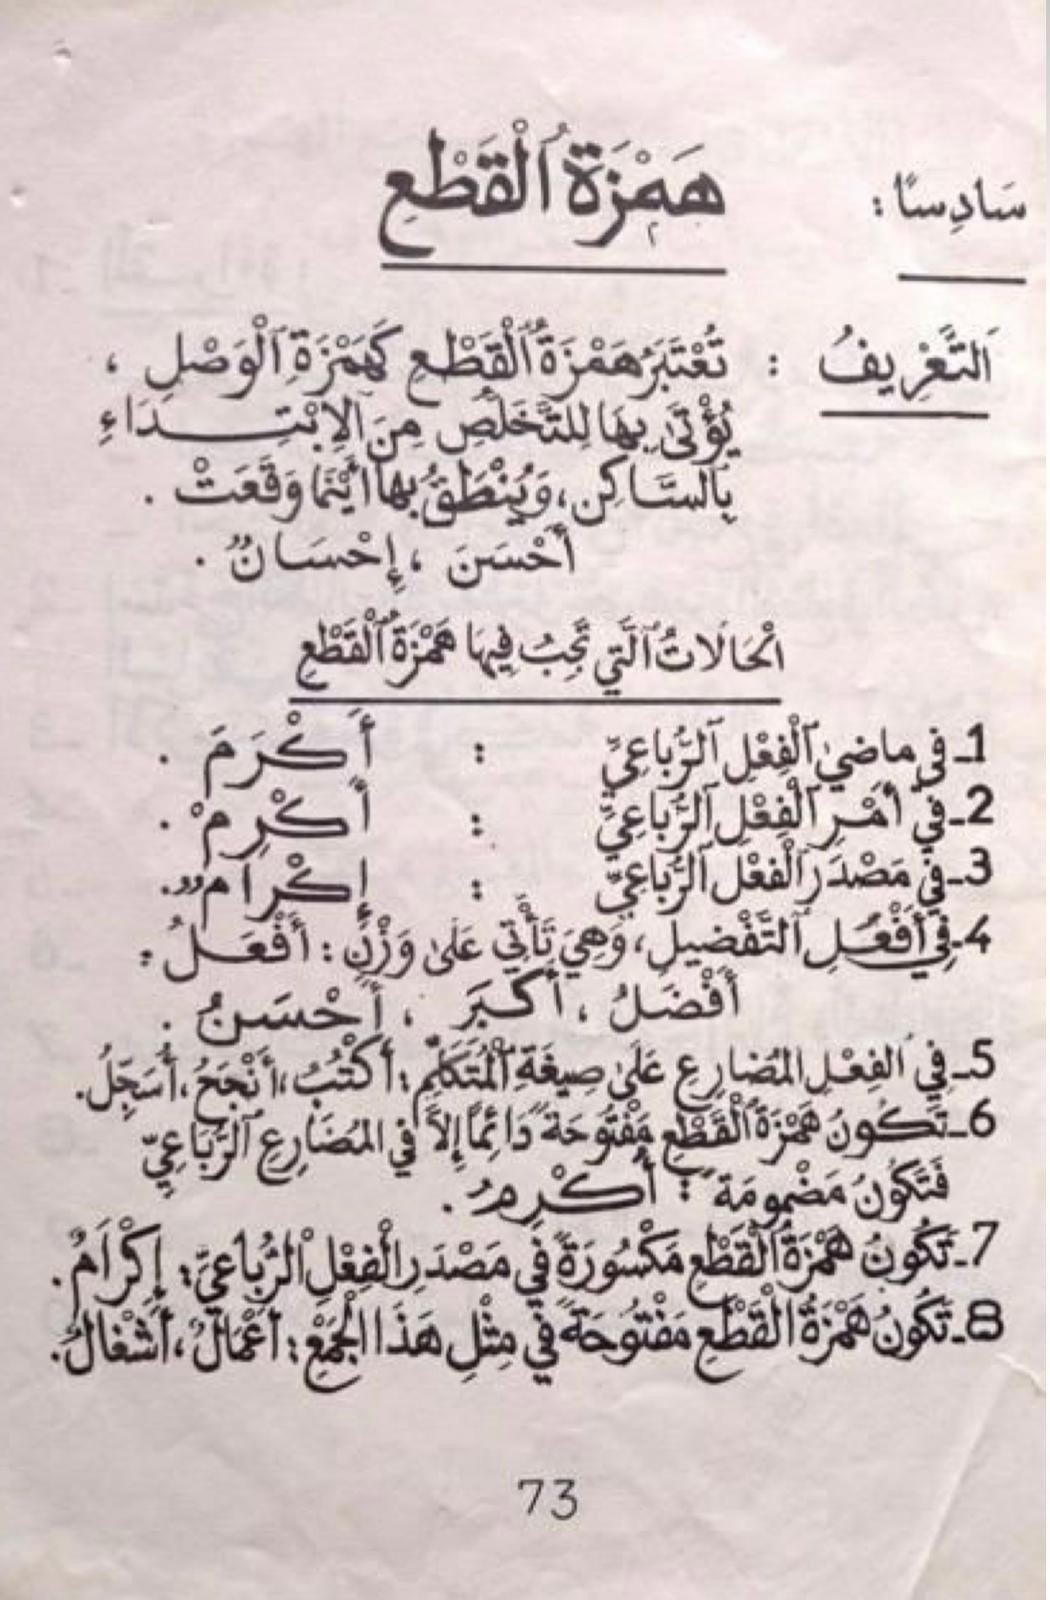 سَادِسًا : هَمْزَةُ ٱلْقَطْعِ
اَلتَّعْرِيفُ : تُعْتَبَرُ هَمْزَةُ ٱلْقَطْعِ كَهَمْزَةِ ٱلْوَصْلِ ،
يُؤْتَىٰ بِهَا لِلتَّخَلُّصِ مِنَ ٱلِابْتِــدَاءِ
بِالسَّاكِنِ، وَيُنْطَقُ بِهَا أَيْنَمَا وَقَعَتْ .
أَحْسَنَ ، إِحْسَانٌ .
اَلْحَالَاتُ ٱلَّتِي تَجِبُ فِيهَا هَمْزَةُ ٱلْقَطْعِ
1ـ في ماضِي ٱلْفِعْلِ ٱلرُّبَاعِيِّ : أَكْرَمَ .
2ـ فِي أَمْرِ ٱلْفِعْلِ ٱلرُّبَاعِيِّ : أَكْرِمْ .
3ـ فِي مَصْدَرِ ٱلْفِعْلِ ٱلرُّبَاعِيِّ : إِكْرَامٌ .
4ـ فِي أَفْعَلِ ٱلتَّفْضِيلِ، وَهِيَ تَأْتِي عَلَىٰ وَزْنِ : أَفْعَلُ :
أَفْضَلُ ، أَكْبَرَ ، أَحْسَنُ .
5ـ فِي ٱلفِعْلِ المُضَارِعِ عَلَىٰ صِيغَةِ ٱلْمُتَكَلِّمِ : أَكْتُبُ، أَنْجَحُ، أُسَجِّلُ.
6ـ تَكُونُ هَمْزَةُ ٱلْقَطْعِ مَفْتُوحَةً دَائِمًا إِلَّا فِي المُضَارِعِ ٱلرُّبَاعِيِّ
فَتَكُونُ مَضْمُومَةً : أُكْرِمُ .
7ـ تَكُونُ هَمْزَةُ ٱلْقَطْعِ مَكْسُورَةً فِي مَصْدَرِ ٱلْفِعْلِ ٱلرُّبَاعِيِّ : إِكْرَامٌ .
8ـ تَكُونُ هَمْزَةُ ٱلْقَطْعِ مَفْتُوحَةً فِي مِثْلِ هَذَا الْجَمْعِ : أَعْمَالٌ ، أَشْغَالٌ.
73